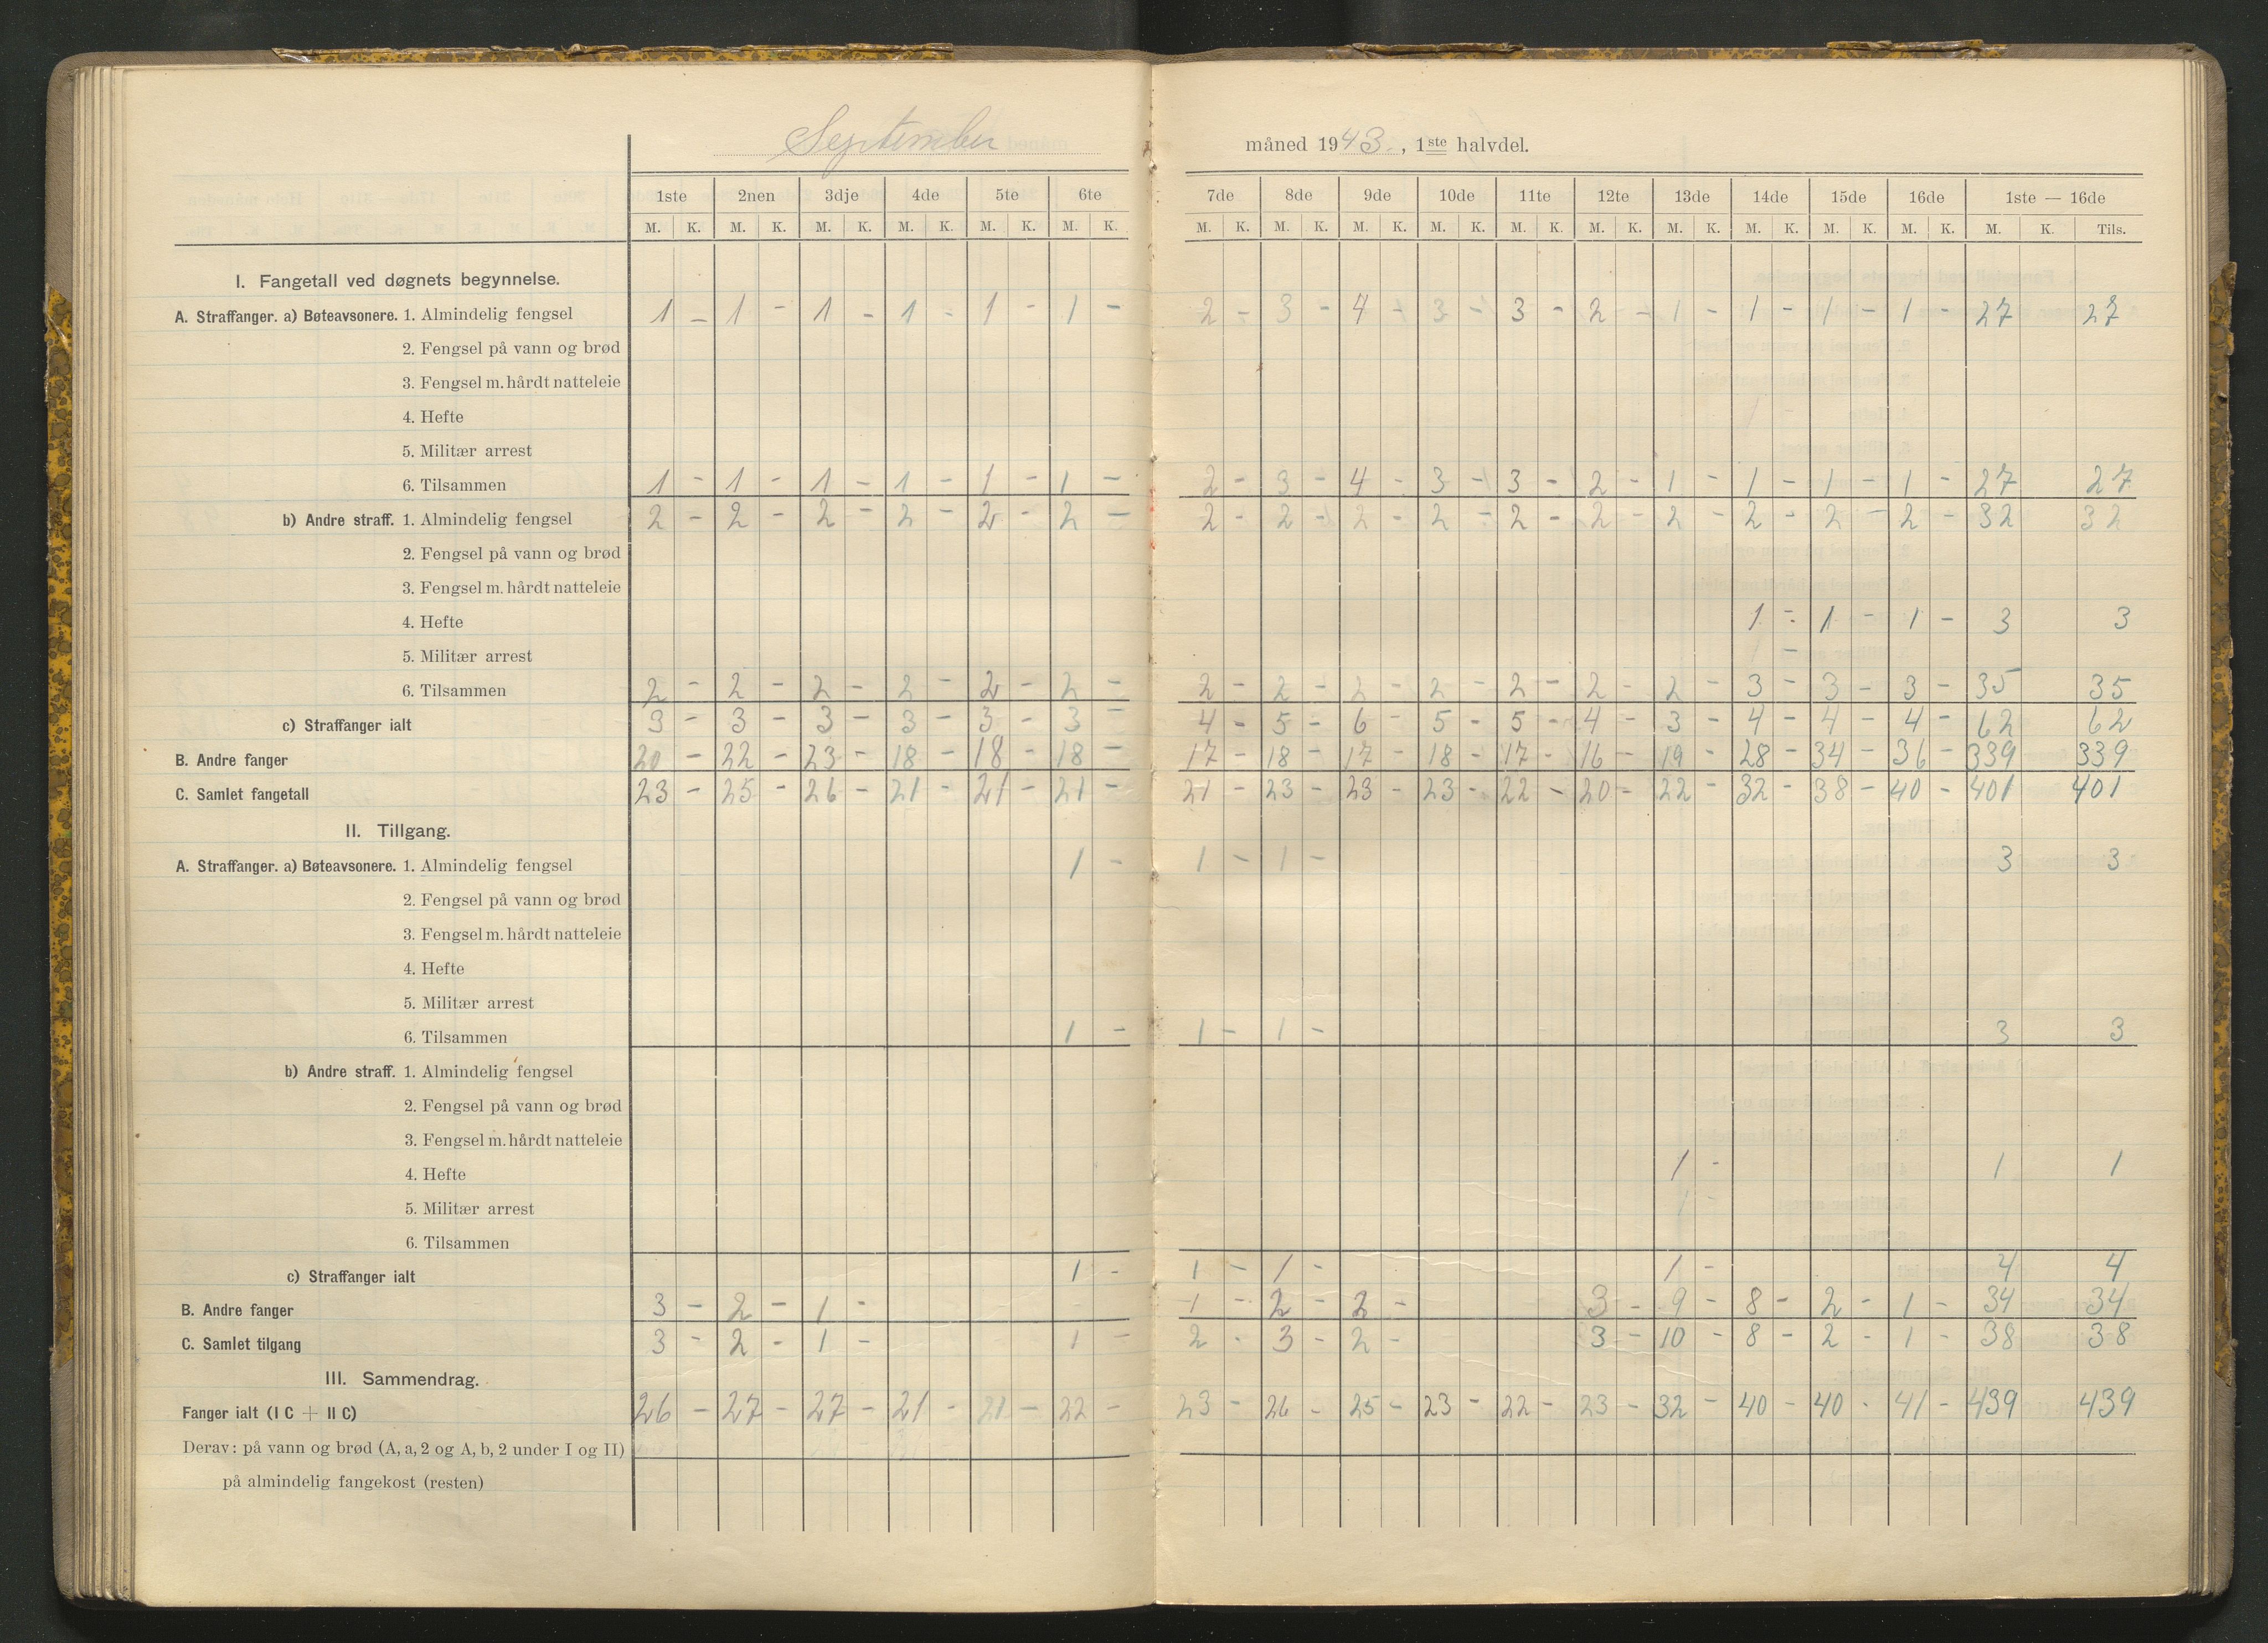 September måned 1943., 1ste halvdel.
1ste 2nen 3dje 4de 5te 6te 7de 8de 9de 10de 11te 12te 13de 14de 15de 16de 1ste — 16de
M. K. M. K. M. K. M. K. M. K. M. K. M. K. M. K. M. K. M. K. M. K. M. K. M. K. M. K. M. K. M. K. M. K. Tils.
I. Fangetall ved døgnets begynnelse.
A. Straffanger. a) Bøteavsonere. 1. Almindelig fengsel 1 – 1 – 1 – 1 – 1 – 1 – 2 – 3 – 4 – 3 – 3 – 2 – 1 – 1 – 1 – 1 – 27 27
2. Fengsel på vann og brød
3. Fengsel m. hårdt natteleie
4. Hefte
5. Militær arrest
6. Tilsammen 1 – 1 – 1 – 1 – 1 – 1 – 2 – 3 – 4 – 3 – 3 – 2 – 1 – 1 – 1 – 1 – 27 27
b) Andre straff. 1. Almindelig fengsel 2 – 2 – 2 – 2 – 2 – 2 – 2 – 2 – 2 – 2 – 2 – 2 – 2 – 2 – 2 – 2 – 32 32
2. Fengsel på vann og brød
3. Fengsel m. hårdt natteleie
4. Hefte 1 – 1 – 1 – 3 3
5. Militær arrest
6. Tilsammen 2 – 2 – 2 – 2 – 2 – 2 – 2 – 2 – 2 – 2 – 2 – 2 – 2 – 3 – 3 – 3 – 35 35
c) Straffanger ialt 3 – 3 – 3 – 3 – 3 – 3 – 4 – 5 – 6 – 5 – 5 – 4 – 3 – 4 – 4 – 4 – 62 62
B. Andre fanger 20 – 22 – 23 – 18 – 18 – 18 – 17 – 18 – 17 – 18 – 17 – 16 – 19 – 28 – 34 – 36 – 339 339
C. Samlet fangetall 23 – 25 – 26 – 21 – 21 – 21 – 21 – 23 – 23 – 23 – 22 – 20 – 22 – 32 – 38 – 40 – 401 401
II. Tillgang.
A. Straffanger. a) Bøteavsonere. 1. Almindelig fengsel 1 – 1 – 1 – 3 3
2. Fengsel på vann og brød
3. Fengsel m. hårdt natteleie
4. Hefte
5. Militær arrest
6. Tilsammen 1 – 1 – 1 – 3 3
b) Andre straff. 1. Almindelig fengsel
2. Fengsel på vann og brød
3. Fengsel m. hårdt natteleie
4. Hefte 1 – 1 1
5. Militær arrest
6. Tilsammen
c) Straffanger ialt 1 – 1 – 1 – 1 – 4 4
B. Andre fanger 3 – 2 – 1 – 1 – 2 – 2 – 3 – 9 – 8 – 2 – 1 – 34 34
C. Samlet tilgang 3 – 2 – 1 – 1 – 2 – 3 – 2 – 3 – 10 – 8 – 2 – 1 – 38 38
III. Sammendrag.
Fanger ialt (I C + II C) 26 – 27 – 27 – 21 – 21 – 22 – 23 – 26 – 25 – 23 – 22 – 23 – 32 – 40 – 40 – 41 – 439 439
Derav: på vann og brød (A, a, 2 og A, b, 2 under I og II)
på almindelig fangekost (resten)